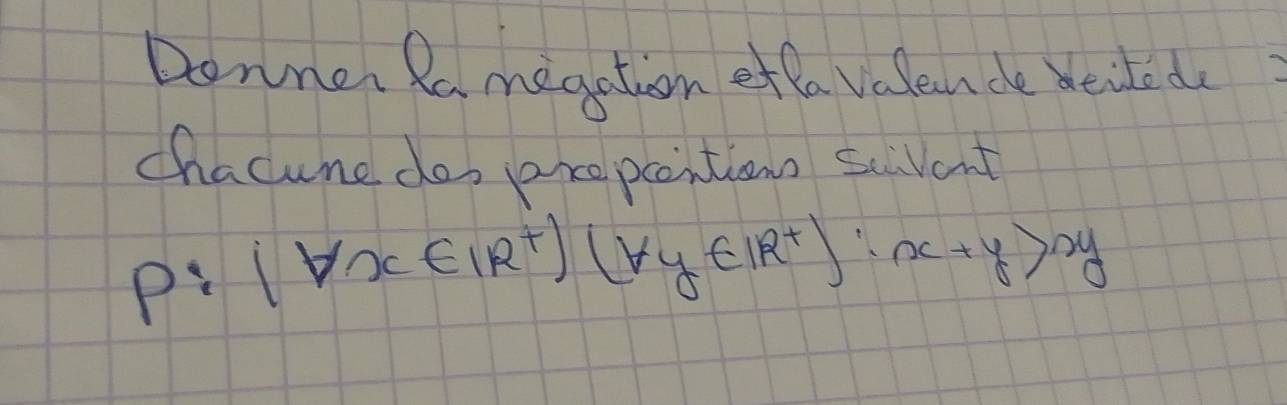 Donner la négation et la valeur de véritéde
chacune des propositions suivant
P: (∀x ∈ ℝ⁺) (∀y ∈ ℝ⁺) : x + y > xy